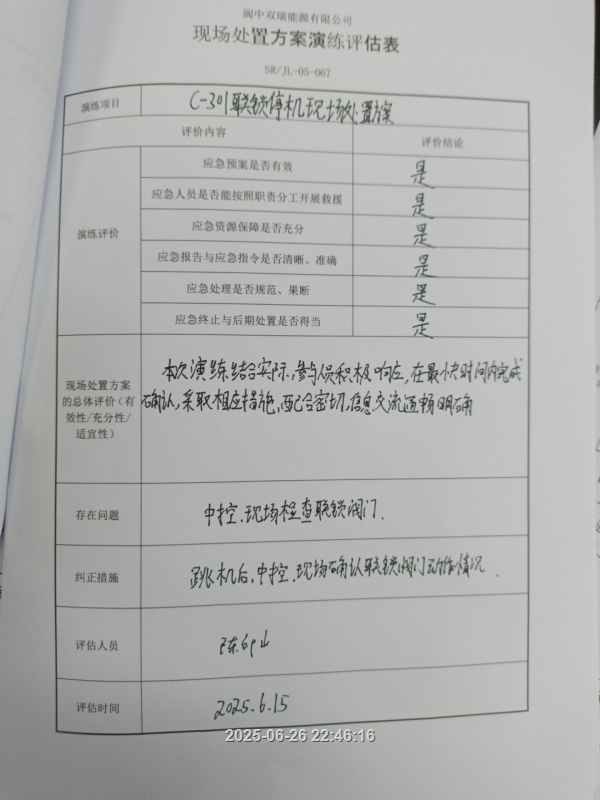 阆中双瑞能源有限公司
现场处置方案演练评估表
SR/JL-05-067
演练项目 C-301联锁停机现场处置方案
评价内容 评价结论
演练评价
应急预案是否有效 是
应急人员是否能按照职责分工开展救援 是
应急资源保障是否充分 是
应急报告与应急指令是否清晰、准确 是
应急处理是否规范、果断 是
应急终止与后期处置是否得当 是
现场处置方案
的总体评价（有
效性/充分性/
适宜性）
本次演练结合实际，参与人员积极响应，在最快时间内完成
确认，采取相应措施，配合密切，信息交流通畅明确
存在问题 中控、现场检查联锁阀门.
纠正措施 跳机后，中控、现场确认联锁阀门动作情况.
评估人员 陈
评估时间 2025.6.15
2025-06-26 22:46:16